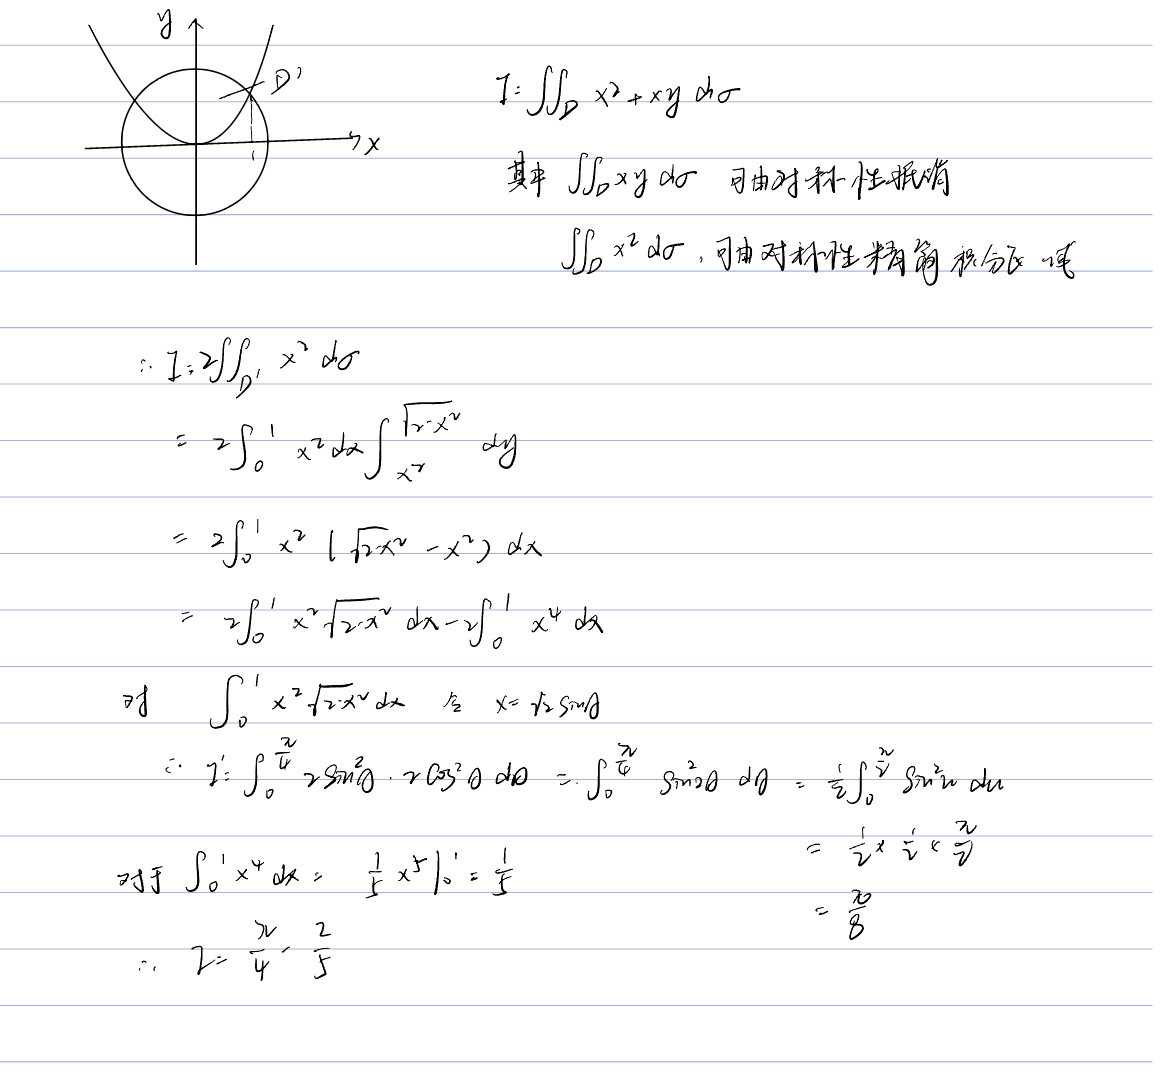 y
D'
x
1
I = ∬_D x² + xy dσ
其中 ∬_D xy dσ 可由对称性抵消
∬_D x² dσ, 可由对称性精简积分区域
∴ I = 2∬_D' x² dσ
= 2∫₀¹ x² dx ∫_{x²}^{√(2-x²)} dy
= 2∫₀¹ x² (√(2-x²) - x²) dx
= 2∫₀¹ x² √(2-x²) dx - 2∫₀¹ x⁴ dx
对 ∫₀¹ x² √(2-x²) dx 令 x = √2 sinθ
∴ I' = ∫₀^{π/4} 2sin²θ · 2cos²θ dθ = ∫₀^{π/4} sin²2θ dθ = 1/2 ∫₀^{π/2} sin²u du
= 1/2 × 1/2 × π/2
= π/8
对于 ∫₀¹ x⁴ dx = 1/5 x⁵ |₀¹ = 1/5
∴ I = π/4 - 2/5